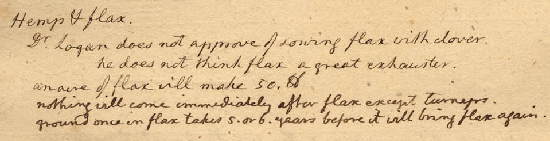 Hemp & flax.
Dr. Logan does not approve of sowing flax with clover.
he does not think flax a great exhauster.
an acre of flax will make 50. ℔
nothing will come immediately after flax except turneps.
ground once in flax takes 5. or 6. years before it will bring flax again.